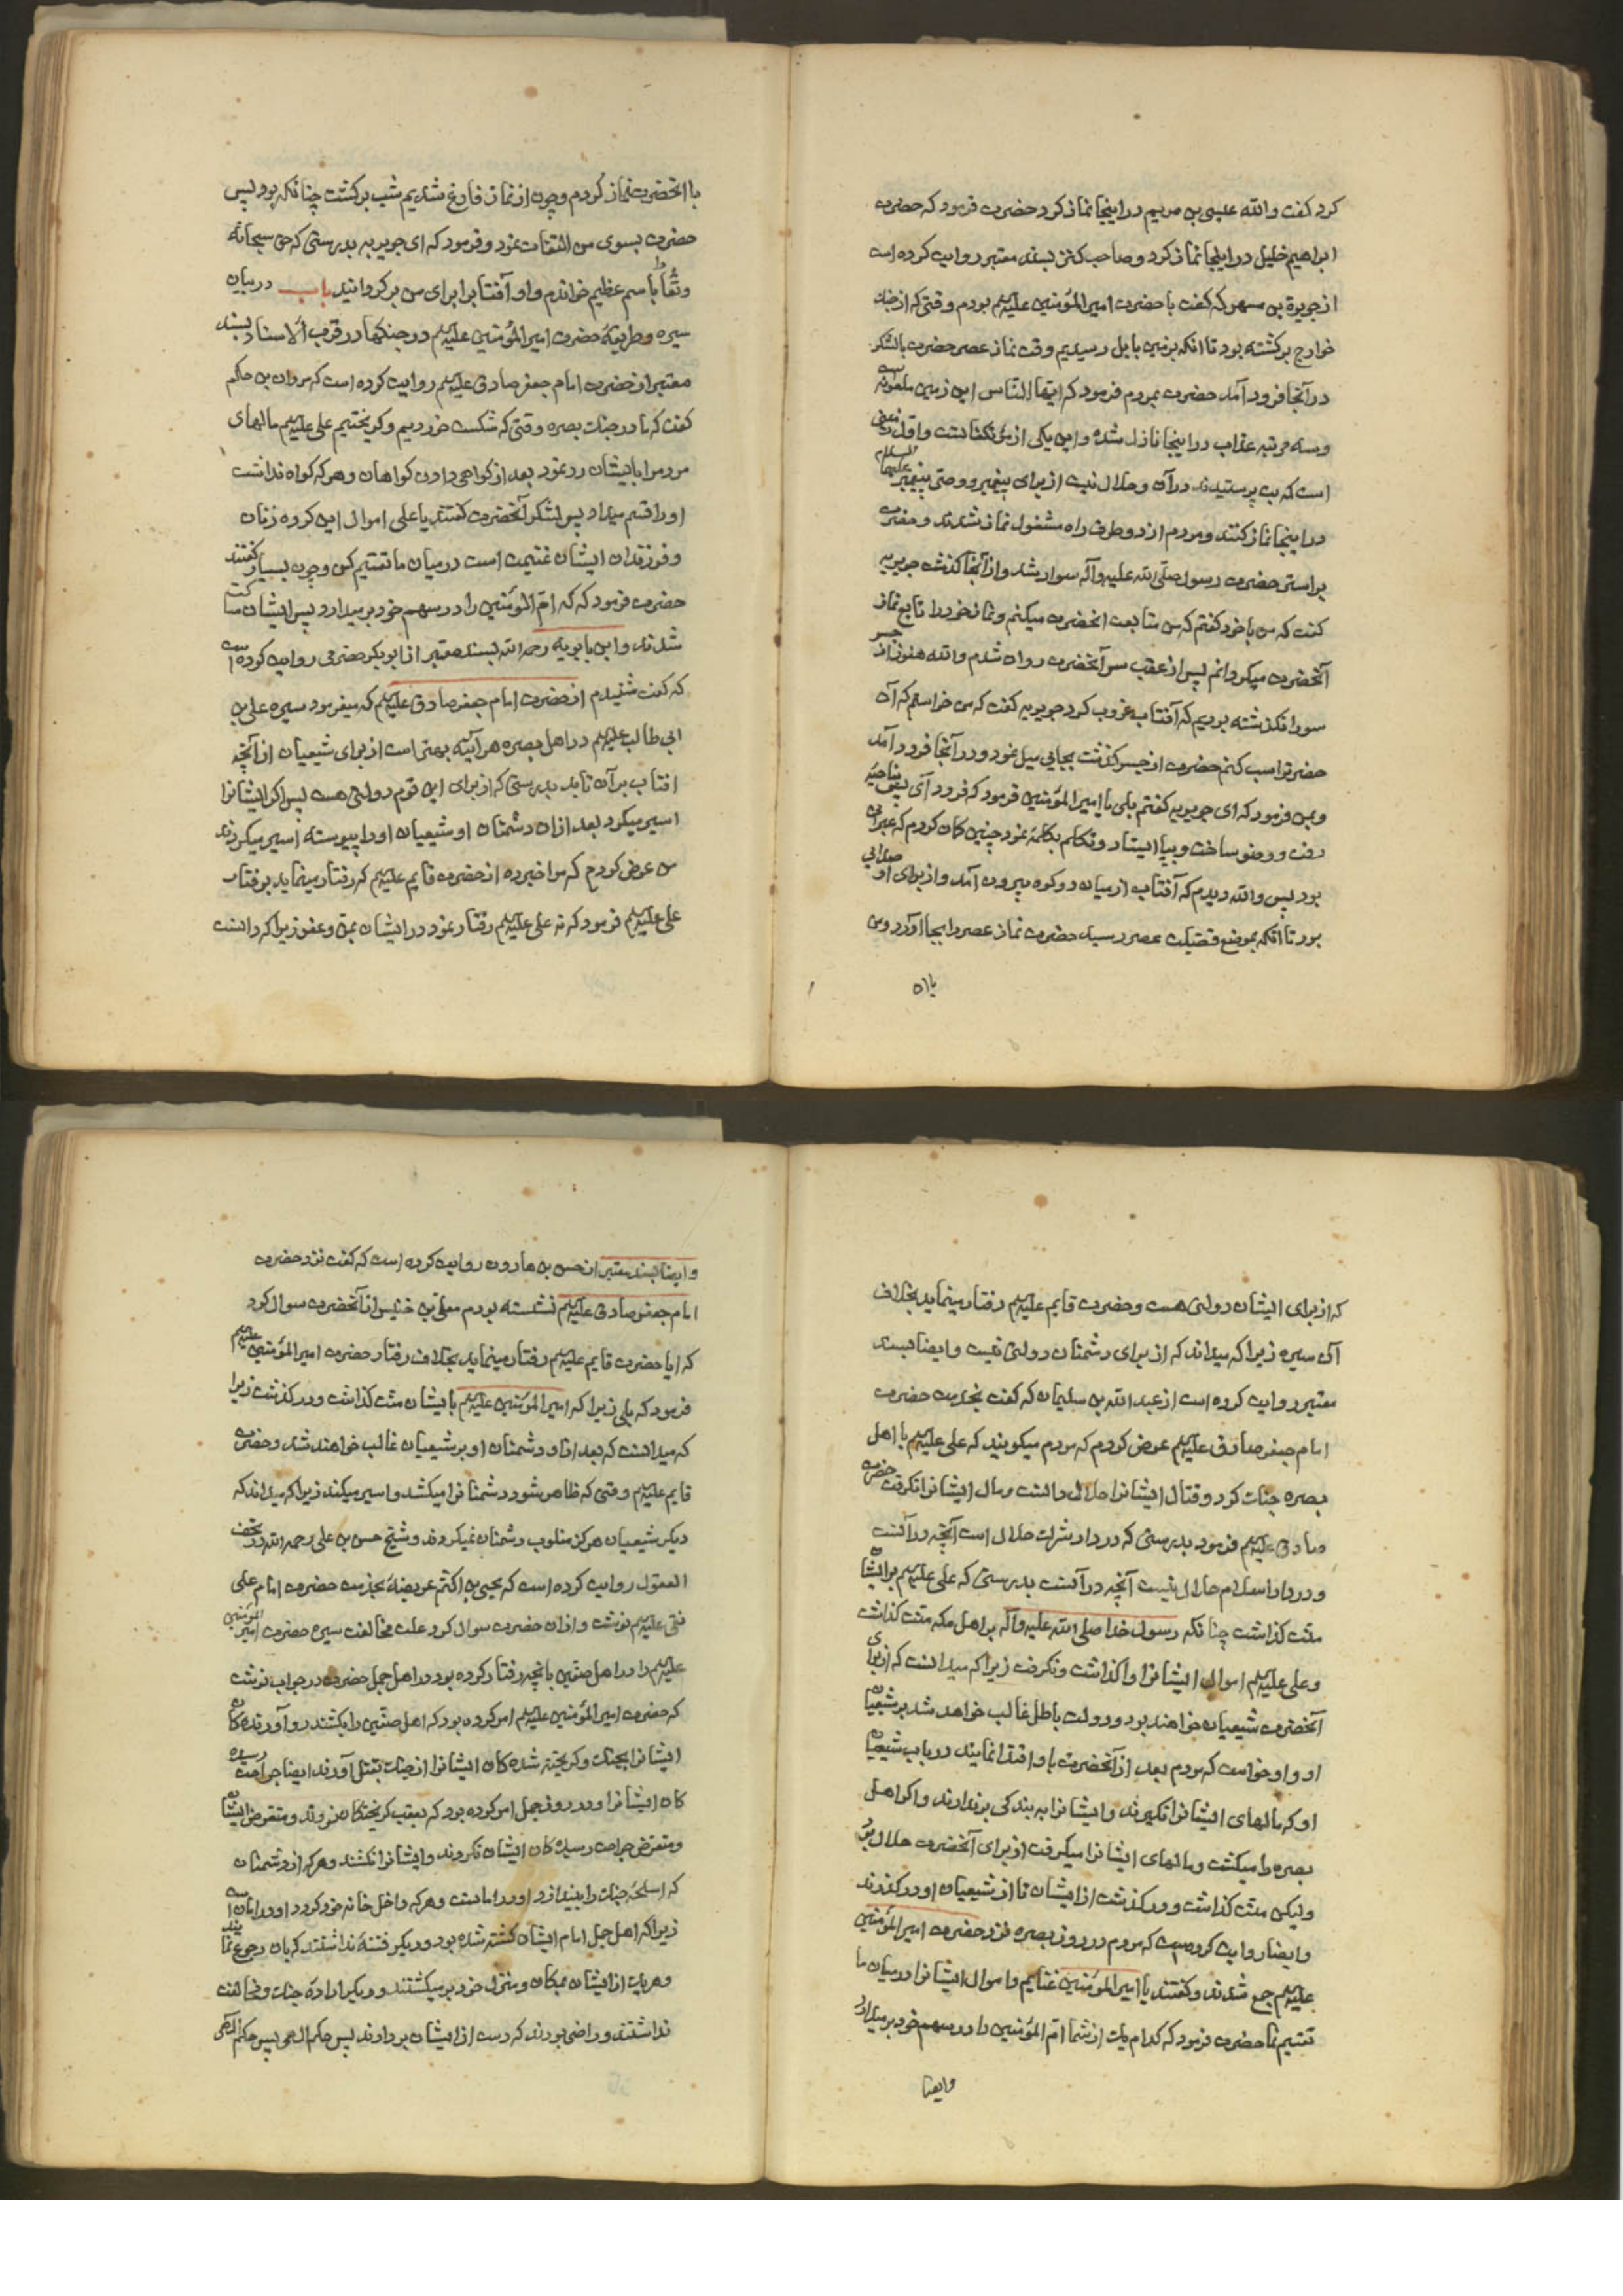 کرد کفت والله عیسی بن مریم در اینجا نماز کرد حضرت فرمود که حضرت
ابراهیم خلیل در اینجا نماز کرد و صاحب کنز بسند معتبر روایت کرده است
از جویرة بن مسهر که کفت با حضرت امیر المؤمنین علیه‌السلم بودم وقتی که از جنک
خوارج برکشته بود تا انکه بزمین بابل رسیدیم وقت نماز عصر حضرت با لشکر
در آنجا فرود آمد حضرت بمردم فرمود که ایها الناس این زمین ملعونه است
و سه مرتبه عذاب در اینجا نازل شده و این یکی از مؤتفکاتست و اول زمینی
است که بت پرستیدند در آن و حلال نیست از برای پیغمبر و وصی پیغمبر علیهما السلام
در اینجا نماز کنند و مردم از دو طرف راه مشغول نماز شدند و حضرت
بر استر حضرت رسول صلی الله علیه وآله سوار شد و از آنجا کذشت جویریه
کفت که من با خود کفتم که من متابعت انحضرت میکنم و نماز خود را تابع نماز
آنحضرت میکردانم پس از عقب سر آنحضرت روان شدم والله هنوز از جسر
سورا نکذشته بودیم که آفتاب غروب کرد جویریه کفت که من خواستم که آن
حضرترا سب کنم حضرت از جسر کذشت بجایی میل نمود و در آنجا فرود آمد
و بمن فرمود که ای جویریه کفتم بلی یا امیر المؤمنین فرمود که فرود آی پس بناحیه
رفت و وضو ساخت و بپا ایستاد و تکلم بکلمه نمود چنین کمان کردم که عبرانی
بود پس والله دیدم که آفتاب از میان دو کوه بیرون آمد و از برای او صدایی
بود تا انکه بموضع فضیلت عصر رسید حضرت نماز عصر را بجا آورد و من
با ان
با انحضرت نماز کردم و چون از نماز فارغ شدیم شب برکشت چنانکه بود پس
حضرت بسوی من التفات نمود و فرمود که ای جویریه بدرستی که حق سبحانه
وتعالی را باسم عظیم خواندم و او آفتابرا برای من برکردانید باب در بیان
سیره و طریقهٔ حضرت امیر المؤمنین علیه‌السلم در جنکها در قرب الاسناد بسند
معتبر از حضرت امام جعفر صادق علیه‌السلم روایت کرده است که مروان بن حکم
کفت که ما در جنک بصره وقتی که شکست خوردیم و کریختیم علی علیه‌السلم مالهای
مردم را بایشان رد نمود بعد از کواهی دادن کواهان و هر که کواه نداشت
او را قسم میداد پس لشکر آنحضرت کفتند یا علی اموال این کروه زنان
و فرزندان ایشان غنیمت است در میان ما تقسیم کن و چون بسیار کفتند
حضرت فرمود که که ام المؤمنین را در سهم خود برمیدارد پس ایشان ساکت
شدند و ابن بابویه رحمه الله بسند معتبر از ابوبکر حضرمی روایت کرده است
که کفت شنیدم از حضرت امام جعفر صادق علیه‌السلم که میفرمود سیره علی بن
ابی طالب علیه‌السلم در اهل بصره هر آینه بهتر است از برای شیعیان از آنچه
افتاب بر آن تابد بدرستی که از برای این قوم دولتی هست پس اکر ایشانرا
اسیر میکرد بعد از ان دشمنان او شیعیان او را پیوسته اسیر میکردند
من عرض کردم که مرا خبر ده از حضرت قایم علیه‌السلم که رفتار مینماید برفتار
علی علیه‌السلم فرمود که نه علی علیه‌السلم رفتار نمود در ایشان بمن و عفو زیرا که دانست
که از برای ایشان دولتی هست و حضرت قایم علیه‌السلم رفتار مینماید بخلاف
آن سیره زیرا که میداند که از برای دشمنان دولتی نیست وایضا بسند
معتبر روایت کرده است از عبد الله بن سلیمان که کفت بخدمت حضرت
امام جعفر صادق علیه‌السلم عرض کردم که مردم میکویند که علی علیه‌السلم با اهل
بصره جنک کرد و قتال ایشانرا حلال دانست و مال ایشانرا نکرفت حضرت
صادق علیه‌السلم فرمود بدرستی که در دار شرک حلال است آنچه در آنست
و در دار اسلام حلال نیست آنچه در آنست بدرستی که علی علیه‌السلم بر ایشان
منت کذاشت چنانکه رسول خدا صلی الله علیه وآله بر اهل مکه منت کذاشت
و علی علیه‌السلم اموال ایشانرا واکذاشت و نکرفت زیرا که میدانست که از برای
آنحضرت شیعیان خواهند بود و دولت باطل غالب خواهد شد بر شیعیان
او و او خواست که مردم بعد از آنحضرت باو اقتدا نمایند در باب شیعیان
او که مالهای ایشانرا نکیرند و ایشانرا به بندکی برندارند و اکر اهل
بصره را میکشت و مالهای ایشانرا میکرفت از برای آنحضرت حلال بود
ولیکن منت کذاشت و درکذشت از ایشان تا از شیعیان او درکذرند
وایضا روایت کردست که مردم در روز بصره نزد حضرت امیر المؤمنین
علیه‌السلم جمع شدند و کفتند یا امیر المؤمنین غنایم و اموال ایشانرا در میان ما
تقسیم نما حضرت فرمود که کدام یک از شما ام المؤمنین را در سهم خود برمیدارد
وایضا
وایضا بسند معتبر از حسن بن هارون روایت کرده است که کفت نزد حضرت
امام جعفر صادق علیه‌السلم نشسته بودم معلی بن خنیس از آنحضرت سوال کرد
که ایا حضرت قایم علیه‌السلم رفتار مینماید بخلاف رفتار حضرت امیر المؤمنین علیه‌السلم
فرمود که بلی زیرا که امیر المؤمنین علیه‌السلم بایشان منت کذاشت و درکذشت زیرا
که میدانست که بعد از او دشمنان او بر شیعیان غالب خواهند شد و حضرت
قایم علیه‌السلم وقتی که ظاهر شود دشمنانرا میکشد و اسیر میکند زیرا که میداند که
دیکر شیعیان هرکز مغلوب دشمنان نمیکردند و شیخ حسن بن علی رحمه الله در تحف
العقول روایت کرده است که یحیی بن اکثم عریضهٔ بخدمت حضرت امام علی
نقی علیه‌السلم نوشت و از ان حضرت سوال کرد علت مخالفت سیره حضرت امیر المؤمنین
علیه‌السلم را در اهل صفین بانچه رفتار کرده بود در اهل جمل حضرت در جواب نوشت
که حضرت امیر المؤمنین علیه‌السلم امر کرده بود که اهل صفین را بکشند رو آورنده کان
ایشانرا بجنک و کریخته شده کان ایشانرا از جنک بقتل آورند ایضا جراحت رسیده
کان ایشانرا و در روز جمل امر کرده بود که بعقب کریختکان نروند و متعرض ایشان
و متعرض جراحت رسیده کان ایشان نکردند و ایشانرا نکشند و هر که از دشمنان
که اسلحهٔ جنک را بیندازد او در امانست و هر که داخل خانه خود کردد او در امان است
زیرا که اهل جمل امام ایشان کشته شده بود و دیکر فتنهٔ نداشتند که بان رجوع نمایند
و هر یک از ایشان بمکان و منزل خود برمیکشتند و دیکر ارادهٔ جنک و مخالفت
نداشتند و راضی بودند که دست از ایشان بردارند پس حکم الهی پس حکم الهی